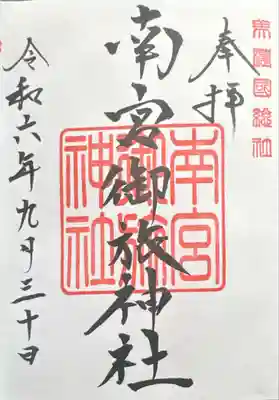 美濃國総社
奉拝
南宮御旅神社
南宮御旅神社
令和六年九月三十日